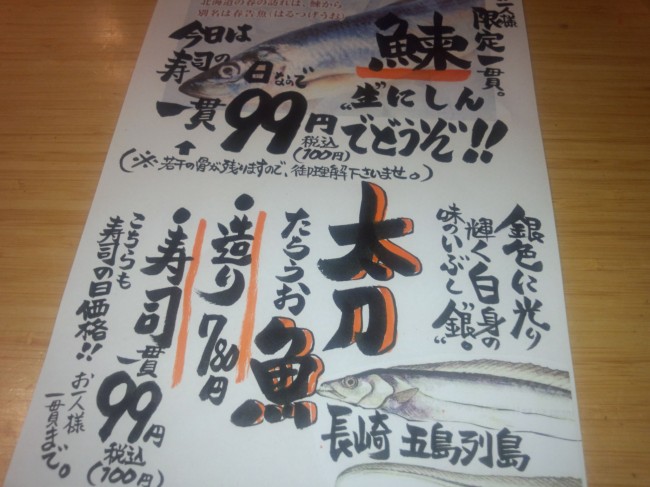 北海道の春の訪れは、鰊から
別名は春告魚(はる・つげうお)
一人様
限定一貫。
鰊
今日は
寿司の日なので
"生"にしん
一貫99円
税込
(100円)
でどうぞ!!
(※若干の骨が残りますので、御理解下さいませ。)
銀色に光り
輝く白身の
味のいぶし"銀"
太刀魚
たちうお
・造り780円
・寿司一貫
99円
税込
(100円)
こちらも
寿司の日価格!!
お一人様
一貫まで。
長崎 五島列島